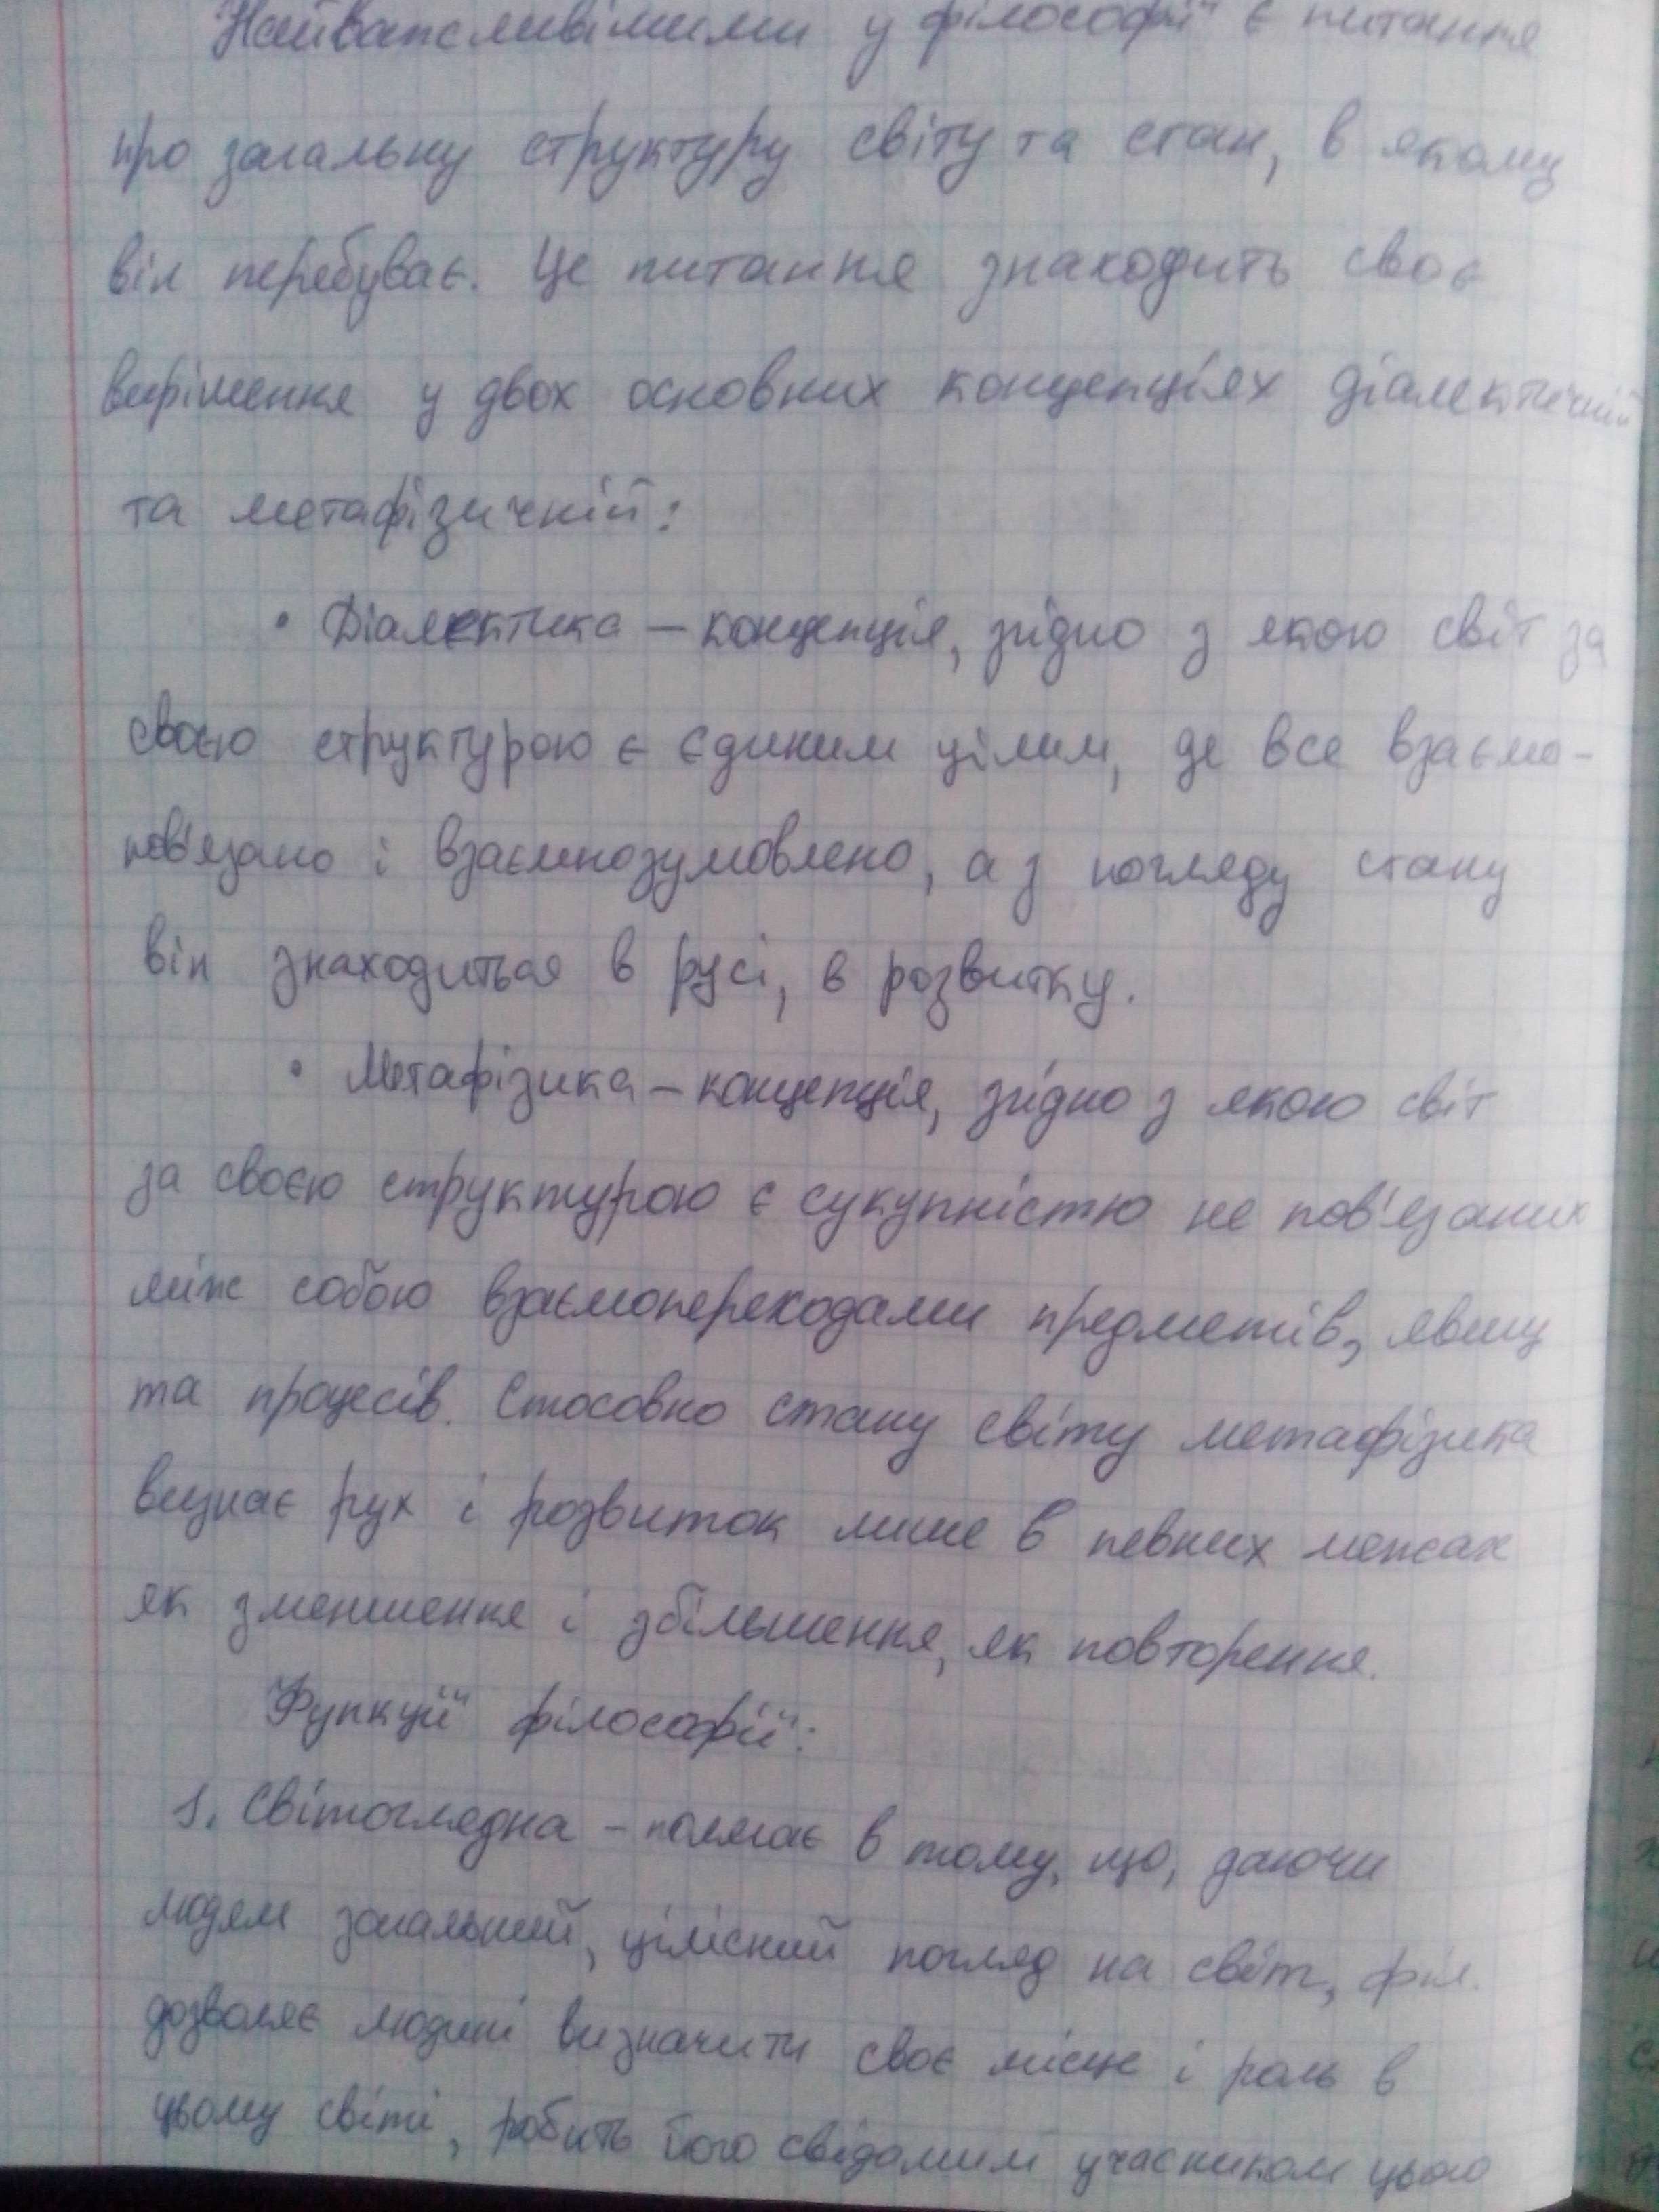 Найважливішими у філософії є питання
про загальну структуру світу та стан, в якому
він перебуває. Це питання знаходить своє
вирішення у двох основних концепціях діалектичній
та метафізичній:
• Діалектика – концепція, згідно з якою світ за
своєю структурою є єдиним цілим, де все взаємо-
пов'язано і взаємнозумовлено, а з погляду стану
він знаходиться в русі, в розвитку.
• Метафізика – концепція, згідно з якою світ
за своєю структурою є сукупністю не пов'язаних
між собою взаємопереходами предметів, явищ
та процесів. Стосовно стану світу метафізика
визнає рух і розвиток лише в певних межах
як зменшення і збільшення, як повторення.
Функції філософії:
1. Світоглядна – полягає в тому, що, даючи
людям загальний, цілісний погляд на світ, філ.
дозволяє людині визначити своє місце і роль в
цьому світі, робить його свідомим учасником цього